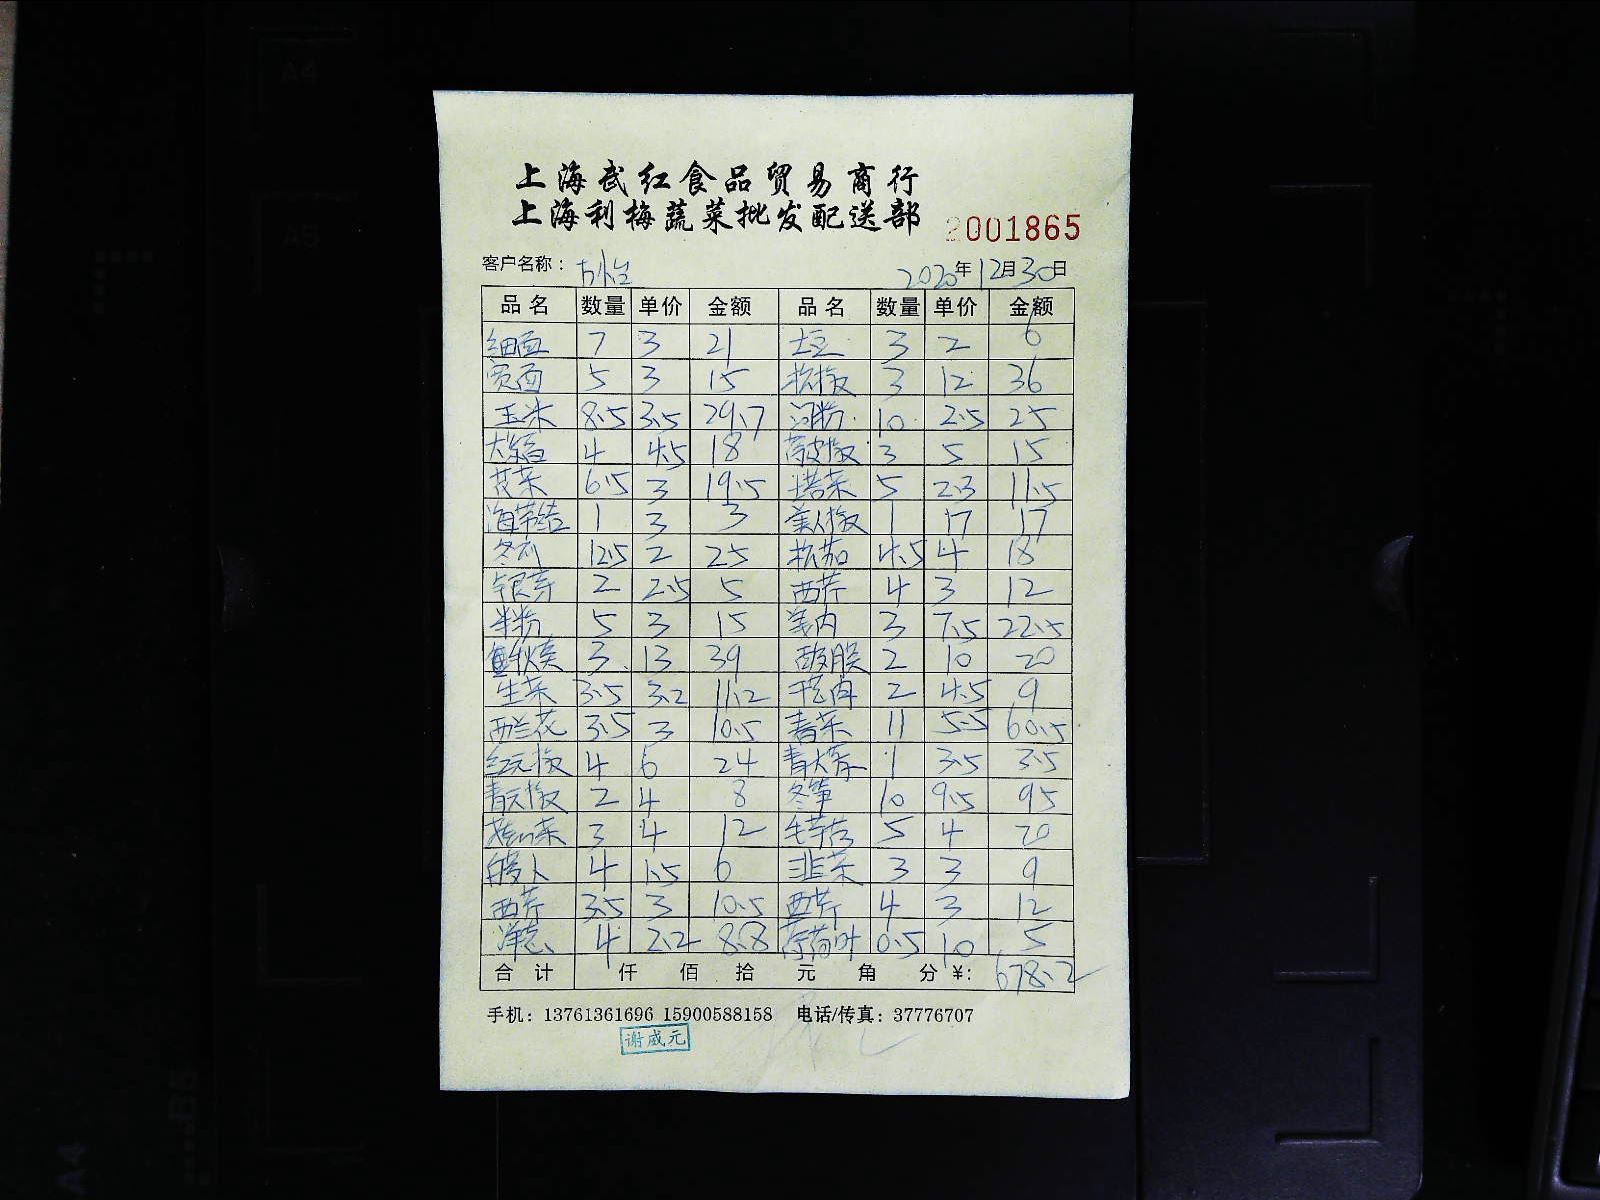 上海武红食品贸易商行
上海利梅蔬菜批发配送部
2001865
客户名称： 2020年12月30日
品名 数量 单价 金额 品名 数量 单价 金额
细面 7 3 21 土豆 3 2 6
宽面 5 3 15 杭椒 3 12 36
玉米 8.5 3.5 29.7 河粉 10 2.5 25
4 4.5 18 薄皮椒 3 5 15
花菜 6.5 3 19.5 塔菜 5 2.3 11.5
海带结 1 3 3 美人椒 1 17 17
冬瓜 12.5 2 25 杭茄 4.5 4 18
银芽 2 2.5 5 西芹 4 3 12
米粉 5 3 15 3 7.5 22.5
3 13 39 2 10 20
生菜 3.5 3.2 11.2 2 4.5 9
西兰花 3.5 3 10.5 11 5.5 60.5
红元椒 4 6 24 1 3.5 3.5
青元椒 2 4 8 冬笋 10 9.5 95
3 4 12 5 4 20
白萝卜 4 1.5 6 韭菜 3 3 9
西芹 3.5 3 10.5 西芹 4 3 12
洋葱 4 2.2 8.8 0.5 10 5
合计 仟 佰 拾 元 角 分 ¥: 678.2
手机：13761361696 15900588158 电话/传真：37776707
谢威元